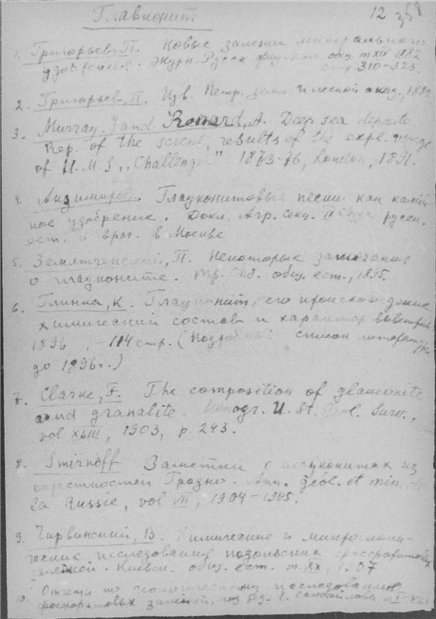 Глауконит
12
1. Григорьев, П. Новые залежи минерального
удобрения. Журн. Русск. физ. хим. общ. т XIV 1882
310-323.
2. Григорьев, П. Изв. Петр. земл
3. Murray, J and Renard, A. Deep sea deposits
Rep. of the scient. results of the expl. voyage
of H.M.S. „Challenger" 1873-76, London, 1891.
4. Глауконитовые пески как калий
ное удобрение. Докл. Агр. секц. IX Съезда русск.
ест. и врач. в Москве
5. Земятченский, П. Некоторые замечания
о глауконите. Тр. СПб. общ. ест., 1895.
6. Глинка, К. Глауконит, его происхождение
химический состав и характер выветрив.
1896, 114 стр. (Подробный список литературы
до 1896 г.)
7. Clarke, F. The composition of glauconite
and granalite. Monogr. U. St. Geol. Surv.,
vol XLIII, 1903, p. 243.
8. Smirnoff Заметки о глауконитах из
окрестностей Грозно. Ann. géol. et min. de
la Russie, vol VII, 1904-1905.
9. Чирвинский, В. Химические и микроскопи-
ческие исследования подольских фосфоритовых
залежей. Киевск. общ. ест. т. XX, 1907
Отчеты по геологическому исследованию
фосфоритовых залежей, под ред. Самойлова т I-VIII